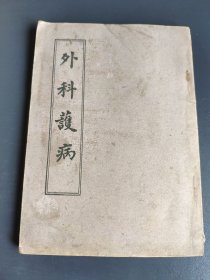 外科護病